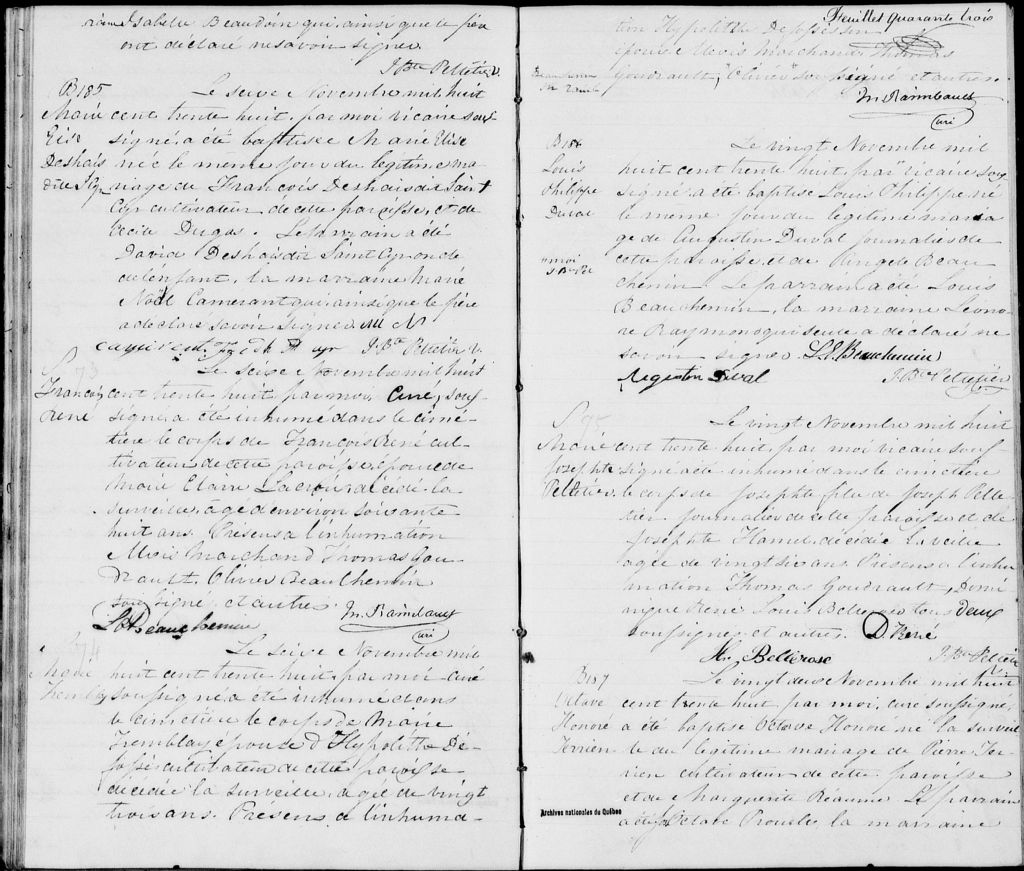 raine Isabelle Beaudoin qui, ainsi que le père
ont déclaré ne savoir signer.
J Bte Pelletier V.
B185
Marie
Elise
Deshais
dite St Cyr
Le seise Novembre mil huit
cent trente huit, par moi vicaire sous
signé, a été baptisée Marie Elise
née le même jour du légitime ma-
riage de François Deshais dit Saint
Cyr cultivateur de cette paroisse, et de
Cecile Dugas. Le parrain a été
David Deshais dit Saint Cyr oncle
de l'enfant, la marraine Marie
Noël Camerant qui ainsi que le père
a déclaré savoir signer. M N
J Bte Pelletier V.
S 73
François
René
Le seise Novembre mil huit
cent trente huit, par moi Curé, sous
signé, a été inhumé dans le cime-
tière le corps de François René cul-
tivateur de cette paroisse, époux de
Marie Claire Lacroix décédé la
surveille, agé d'environ soixante
huit ans. Présens a l'inhumation
Moïse Marchand, Thomas Gou-
drault, Olivier Beauchemin
soussigné et autres.
Ls O Beauchemin
M. Raimbault
curé
S 74
Marie
Tremblay
Le seise Novembre mil
huit cent trente huit, par moi Curé
soussigné a été inhumé dans
le cimetière le corps de Marie
Tremblay épouse d'Hypolitte Dé-
fossés cultivateur de cette paroisse
décédée la surveille, agée de vingt
trois ans. Présens a l'inhuma-
Feuillet quarante trois
tion Hypolitte Defossés son
époux Moïse Marchand Thomas
Goudrault, Olivier soussigné et autres.
Beauchemin
M. Raimbault
curé
B 186
Louis
Philippe
Duval
Le vingt Novembre mil
huit cent trente huit, par vicaire sous
signé a été baptisé Louis Philippe né
le même jour du légitime maria
ge de Augustin Duval journalier de
cette paroisse, et de Beau
chemin. Le parrain a été Louis
Beauchemin, la marraine Leono-
re Raymond qui seule a déclaré ne
savoir signer. Ls Beauchemin
"moi
J Bte Pel
Augustin Duval
J Bte Pelletier
S 75
Marie
Josephte
Pelletier
Le vingt Novembre mil huit
cent trente huit, par moi vicaire sous
signé a été inhumé dans le cimetière
le corps de Josephte fille de Joseph Pelle
tier journalier de cette paroisse et de
Josephte Hamel, décédée la veille
agée de vingt six ans. Présens a l'inhu
mation Thomas Goudrault, Domi
nique René Louis Bellerose tous deux
soussignés, et autres. D. René
H. Bellerose
J Bte Pelletier
B 187
Octave
Honoré
Terrien
Le vingt deux Novembre mil huit
cent trente huit par moi, curé soussigné,
a été baptisé Octave Honoré né la surveil
le du légitime mariage de Pierre Ter-
rien cultivateur de cette paroisse
et de Marguerite Réaume. Le parrain
a été Octave Proulx, la marraine
Archives nationales du Québec